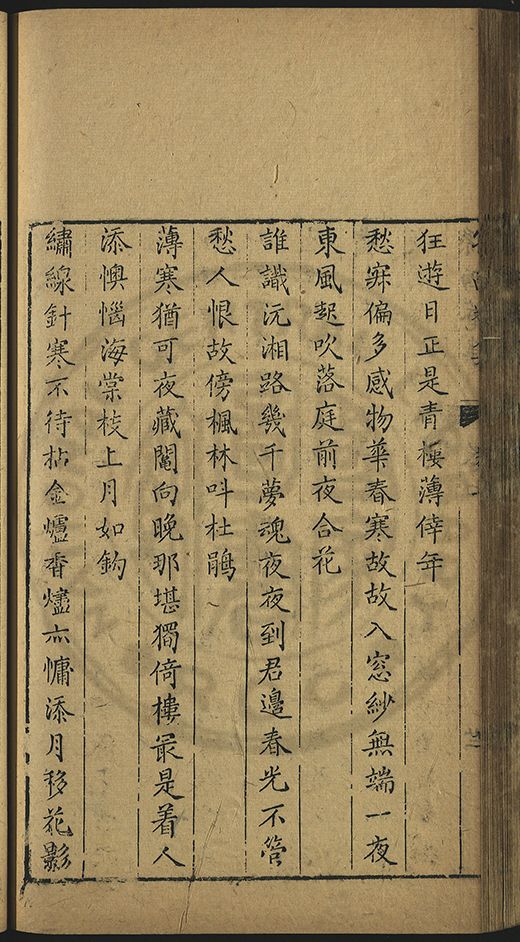 狂遊日正是青樓薄倖年
愁寐偏多感物華春寒故故入窓紗無端一夜
東風起吹落庭前夜合花
誰識沅湘路幾千夢魂夜夜到君邊春光不管
愁人恨故傍楓林呌杜鵑
薄寒猶可夜藏鬮向晚那堪獨倚樓最是着人
添懊惱海棠枝上月如鈎
繡線針寒不待拈金爐香燼亦慵添月移花影